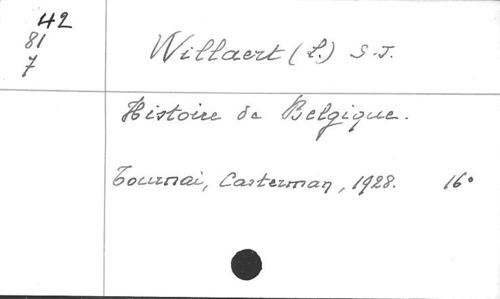 42
81
7
Willaert (L.) S.J.
Histoire de Belgique.
Tournai, Casterman, 1928. 16°